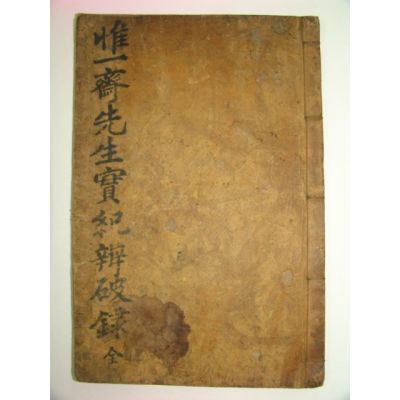 惟一齋先生實紀辨破錄 全